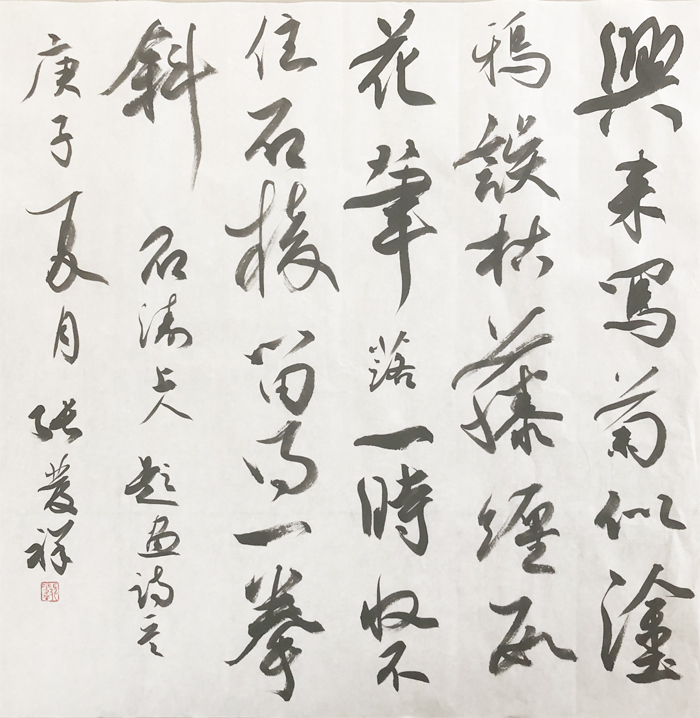 興来寫菊似塗
鴉誤枯藤纏數
花筆落一時收不
住石棱留得一拳
斜 石濤上人題畫詩
庚子夏月張發祥